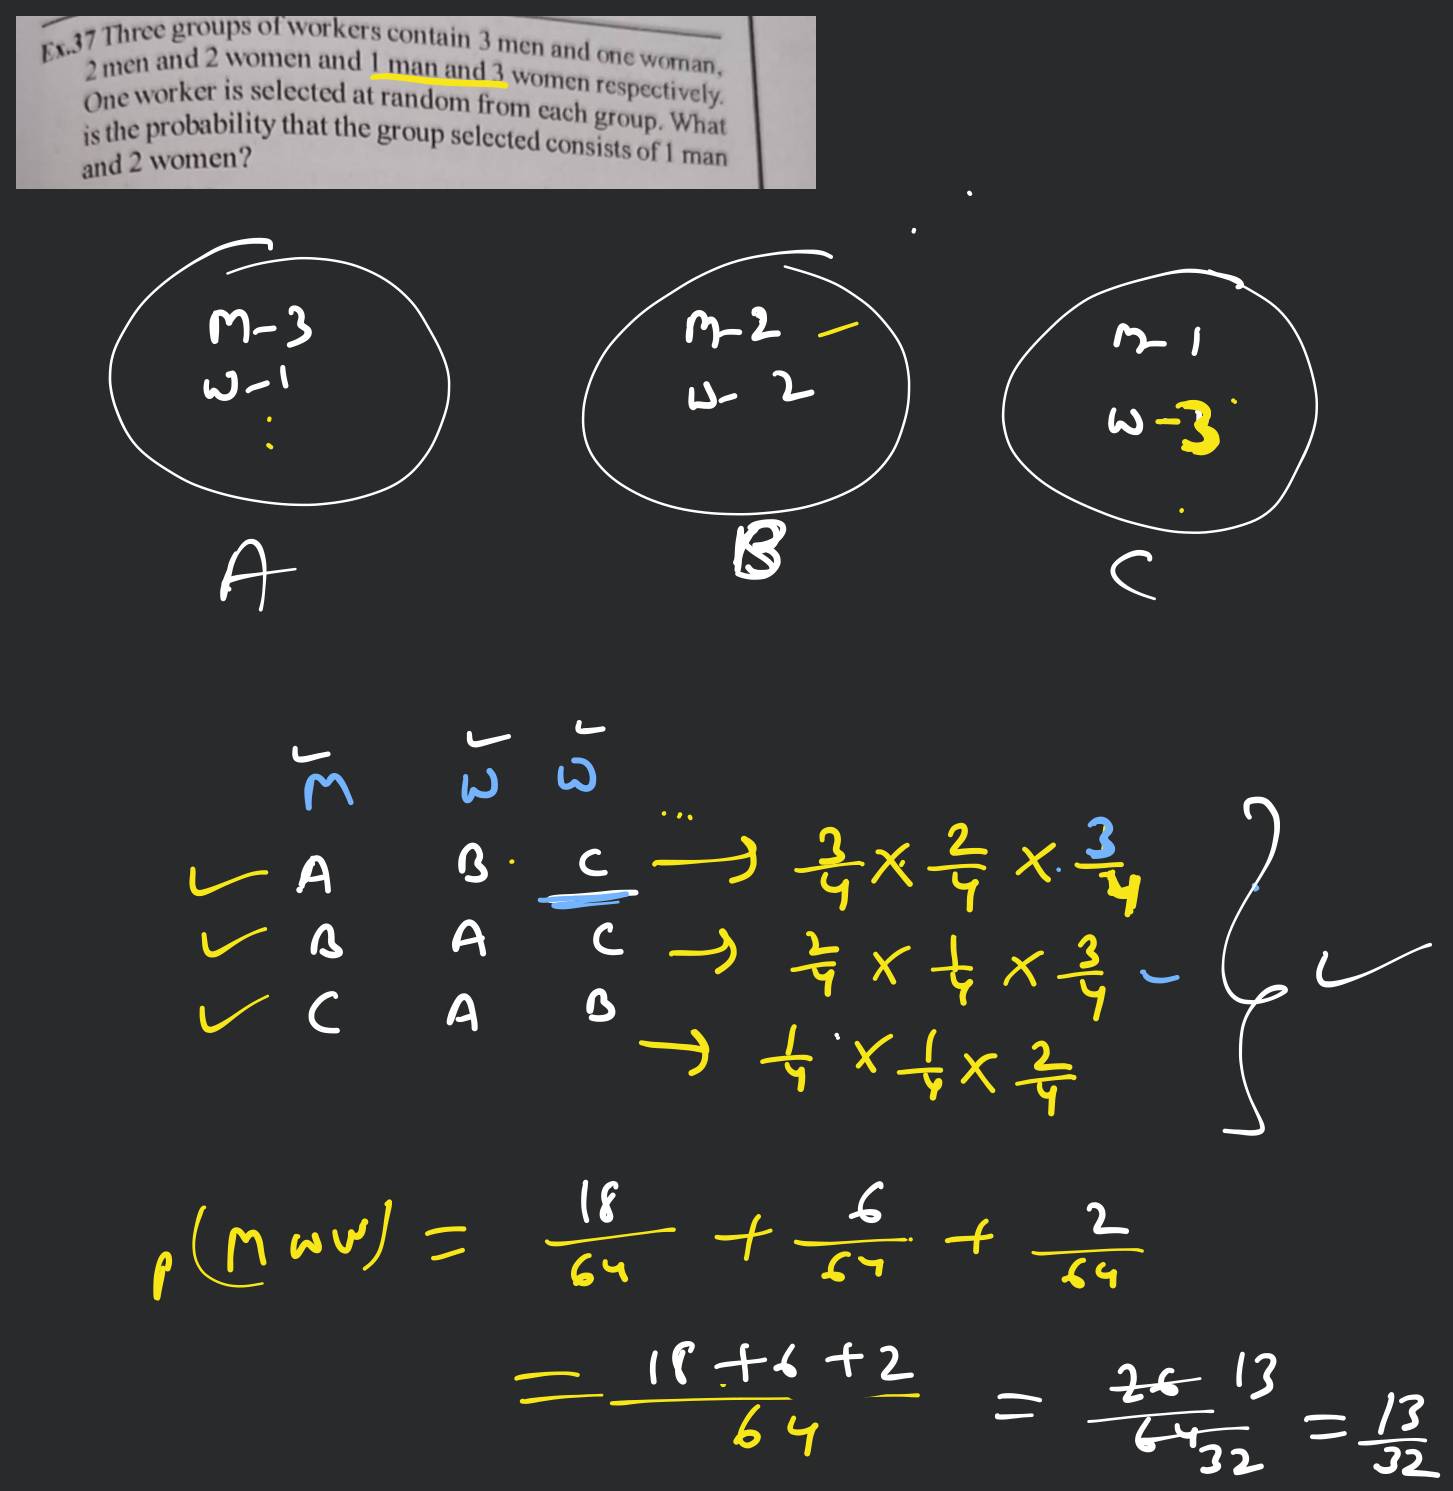 Ex.37 Three groups of workers contain 3 men and one woman,
2 men and 2 women and 1 man and 3 women respectively.
One worker is selected at random from each group. What
is the probability that the group selected consists of 1 man
and 2 women?
M-3 M-2 M-1
W-1 W-2 W-3
A B C
M W W
A B C → 3/4 × 2/4 × 3/4
B A C → 2/4 × 1/4 × 3/4
C A B → 1/4 × 1/4 × 2/4
P(MWW) = 18/64 + 6/64 + 2/64
= 18+6+2/64 = 26/64 13/32 = 13/32